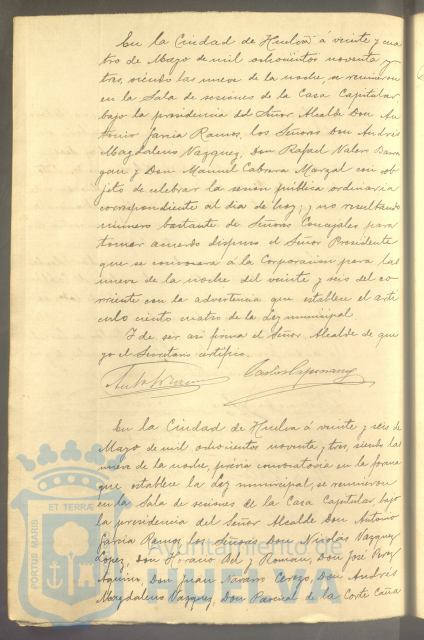 En la Ciudad de Huelva á veinte y cua
tro de Mayo de mil ochocientos noventa y
tres, siendo las nueve de la noche, se reunieron
en la Sala de sesiones de la Casa Capitular
bajo la presidencia del Señor Alcalde Don An
tonio García Ramos, los Señores Don Andrés
Magdaleno Vazquez, Don Rafael Valero Barra
gan y Don Manuel Cabrera Marzal con ob
jeto de celebrar la sesion pública ordinaria
correspondiente al dia de hoy; y no resultando
número bastante de Señores Concejales para
tomar acuerdo dispuso el Señor Presidente
que se convocara á la Corporacion para las
nueve de la noche del veinte y seis del co
rriente con la advertencia que establece el artí
culo ciento cuatro de la Ley municipal
Y de ser así firma el Señor Alcalde de que
yo el Secretario certifico.
En la Ciudad de Huelva á veinte y seis de
Mayo de mil ochocientos noventa y tres, siendo las
nueve de la noche, prévia convocatoria en la forma
que establece la Ley municipal, se reunieron
en la Sala de sesiones de la Casa Capitular bajo
la presidencia del Señor Alcalde Don Antonio
García Ramos, los Señores Don Nicolás Vazquez
Lopez, Don Horacio Bel y Roman, Don José Perez
Don Juan Navarro Cerezo, Don Andrés
Magdaleno Vazquez, Don Pascual de la Corte
PORTUS MARIS ET TERRAE
Ayuntamiento de
HUELVA